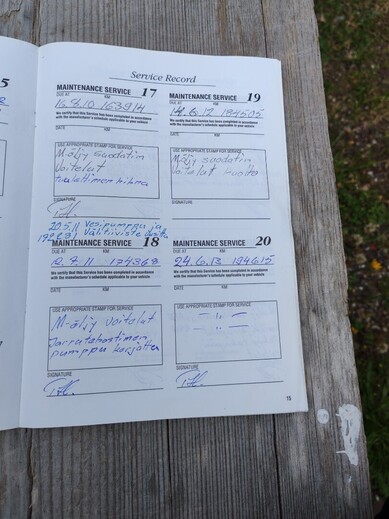 Service Record
MAINTENANCE SERVICE 17
DUE AT KM
16.8.10 163914
We certify that this Service has been completed in accordance
with the manufacturer's schedule applicable to your vehicle
DATE KM
USE APPROPRIATE STAMP FOR SERVICE
M-öljy suodatin
Voitelut
tuulettimen hihna
SIGNATURE
20.5.11 Vesipumppu ja
MAINTENANCE SERVICE 18
DUE AT KM
12.9.11 174368
We certify that this Service has been completed in accordance
with the manufacturer's schedule applicable to your vehicle
DATE KM
USE APPROPRIATE STAMP FOR SERVICE
M-öljy voitelut
Jarrutehostimen
pumppu korjattu
SIGNATURE
MAINTENANCE SERVICE 19
DUE AT KM
14.6.12 184505
We certify that this Service has been completed in accordance
with the manufacturer's schedule applicable to your vehicle
DATE KM
USE APPROPRIATE STAMP FOR SERVICE
M-öljy suodatin
Voitelut huolto
SIGNATURE
MAINTENANCE SERVICE 20
DUE AT KM
24.6.13 194615
We certify that this Service has been completed in accordance
with the manufacturer's schedule applicable to your vehicle
DATE KM
USE APPROPRIATE STAMP FOR SERVICE
— " —
— " —
SIGNATURE